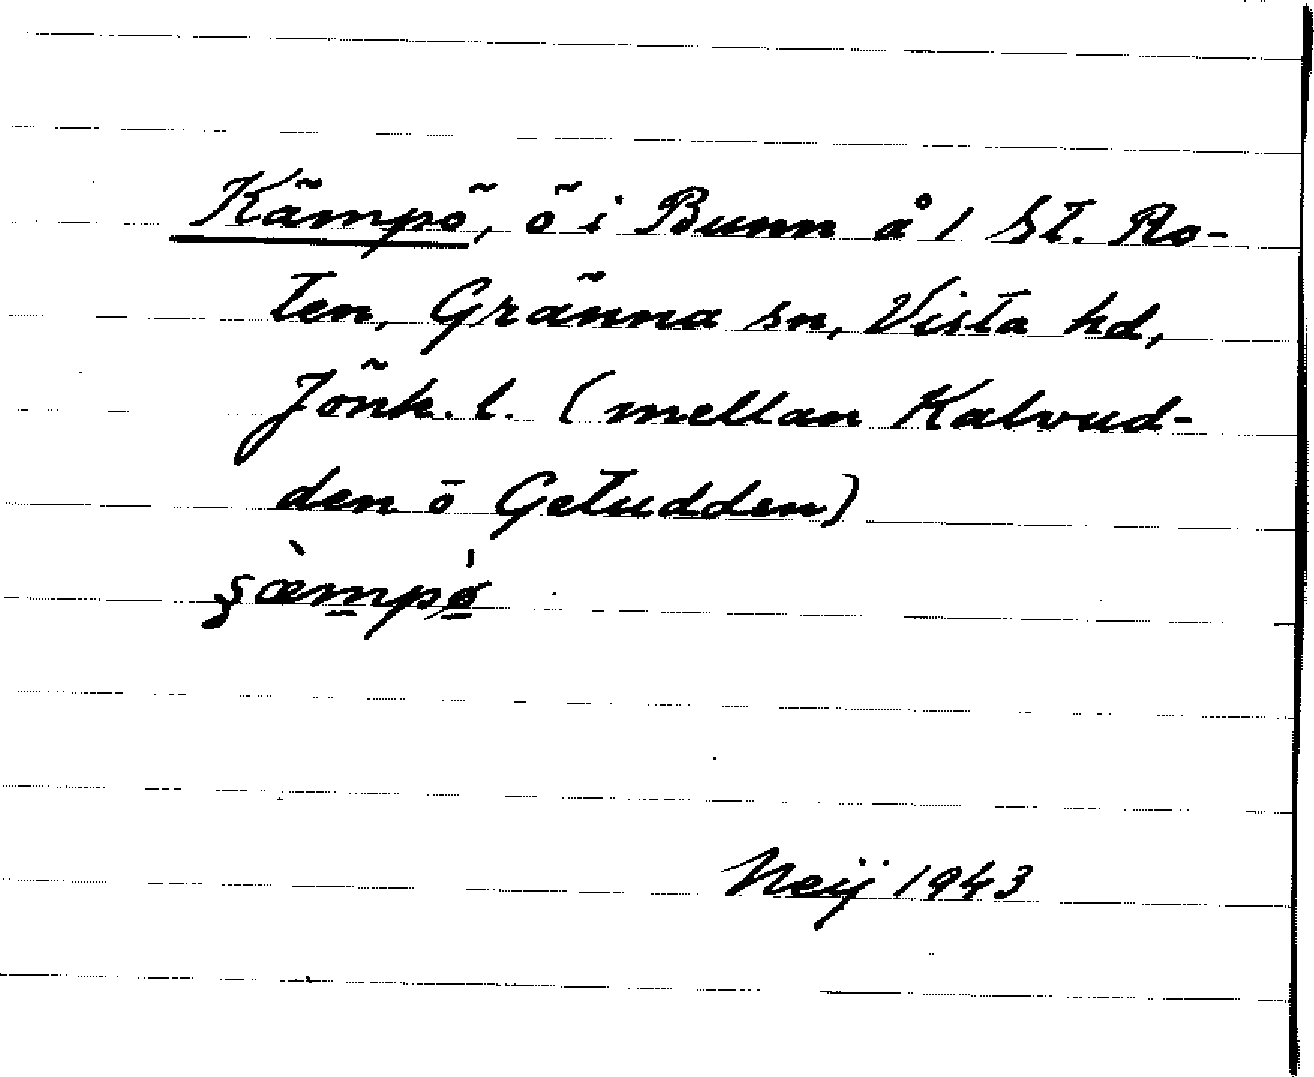 Kämpö, ö i Bunn å 1 St. Ro-
ten, Gränna sn, Vista hd,
Jönk. l. (mellan Kalvud-
den ö Getudden)
Neij 1943